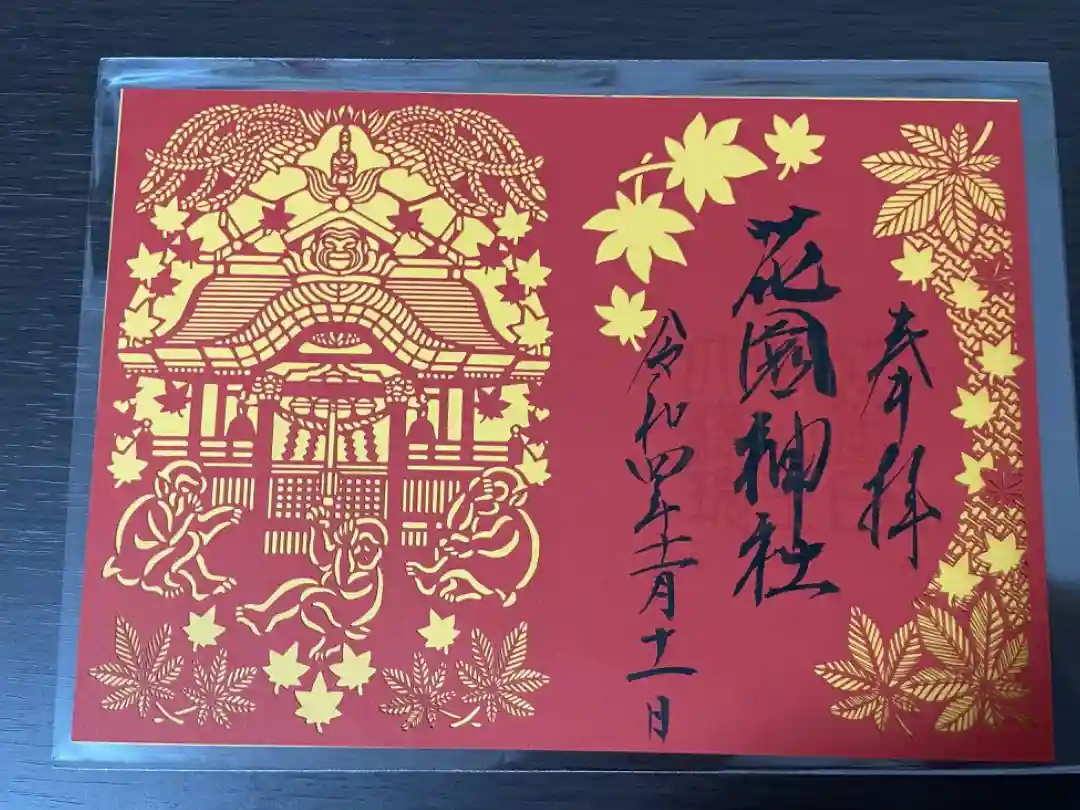 奉拝
花園神社
令和四年十一月十一日